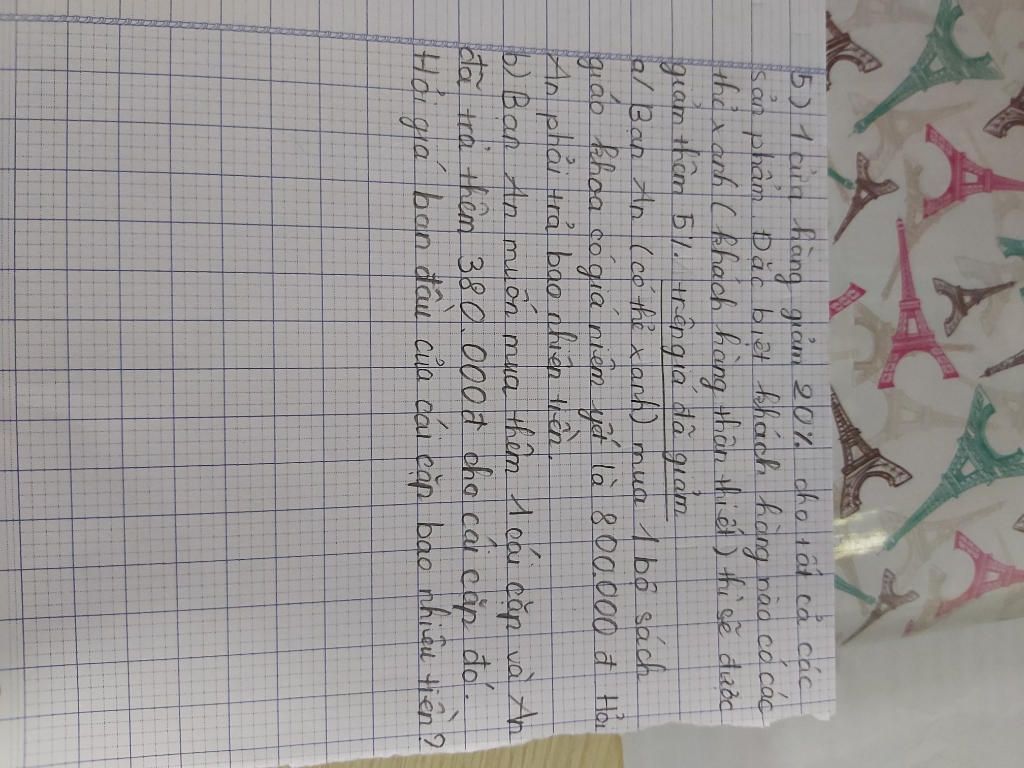 5) 1 cửa hàng giảm 20% cho tất cả các
sản phẩm. Đặc biệt khách hàng nào có các
thẻ xanh (khách hàng thân thiết) thì sẽ được
giảm thêm 5% trên giá đã giảm
a/ Bạn An (có thẻ xanh) mua 1 bộ sách
giáo khoa có giá niêm yết là 800.000 đ Hỏi
An phải trả bao nhiêu tiền.
b) Bạn An muốn mua thêm 1 cái cặp và An
đã trả thêm 380.000đ cho cái cặp đó.
Hỏi giá ban đầu của cái cặp bao nhiêu tiền?